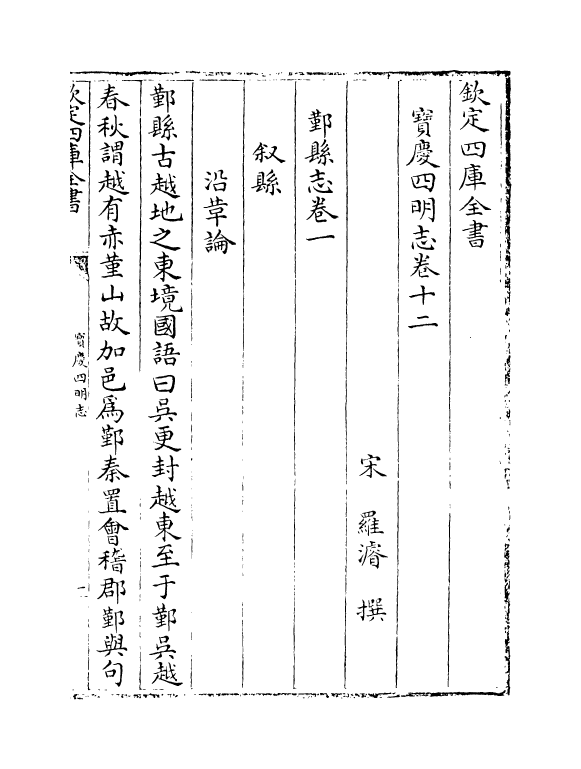 欽定四庫全書
寳慶四明志卷十二
宋 羅濬 撰
鄞縣志卷一
叙縣
沿革論
鄞縣古越地之東境國語曰吳更封越東至于鄞吳越
春秋謂越有赤堇山故加邑爲鄞秦置會稽郡鄞與句
欽定四庫全書
寳慶四明志
一